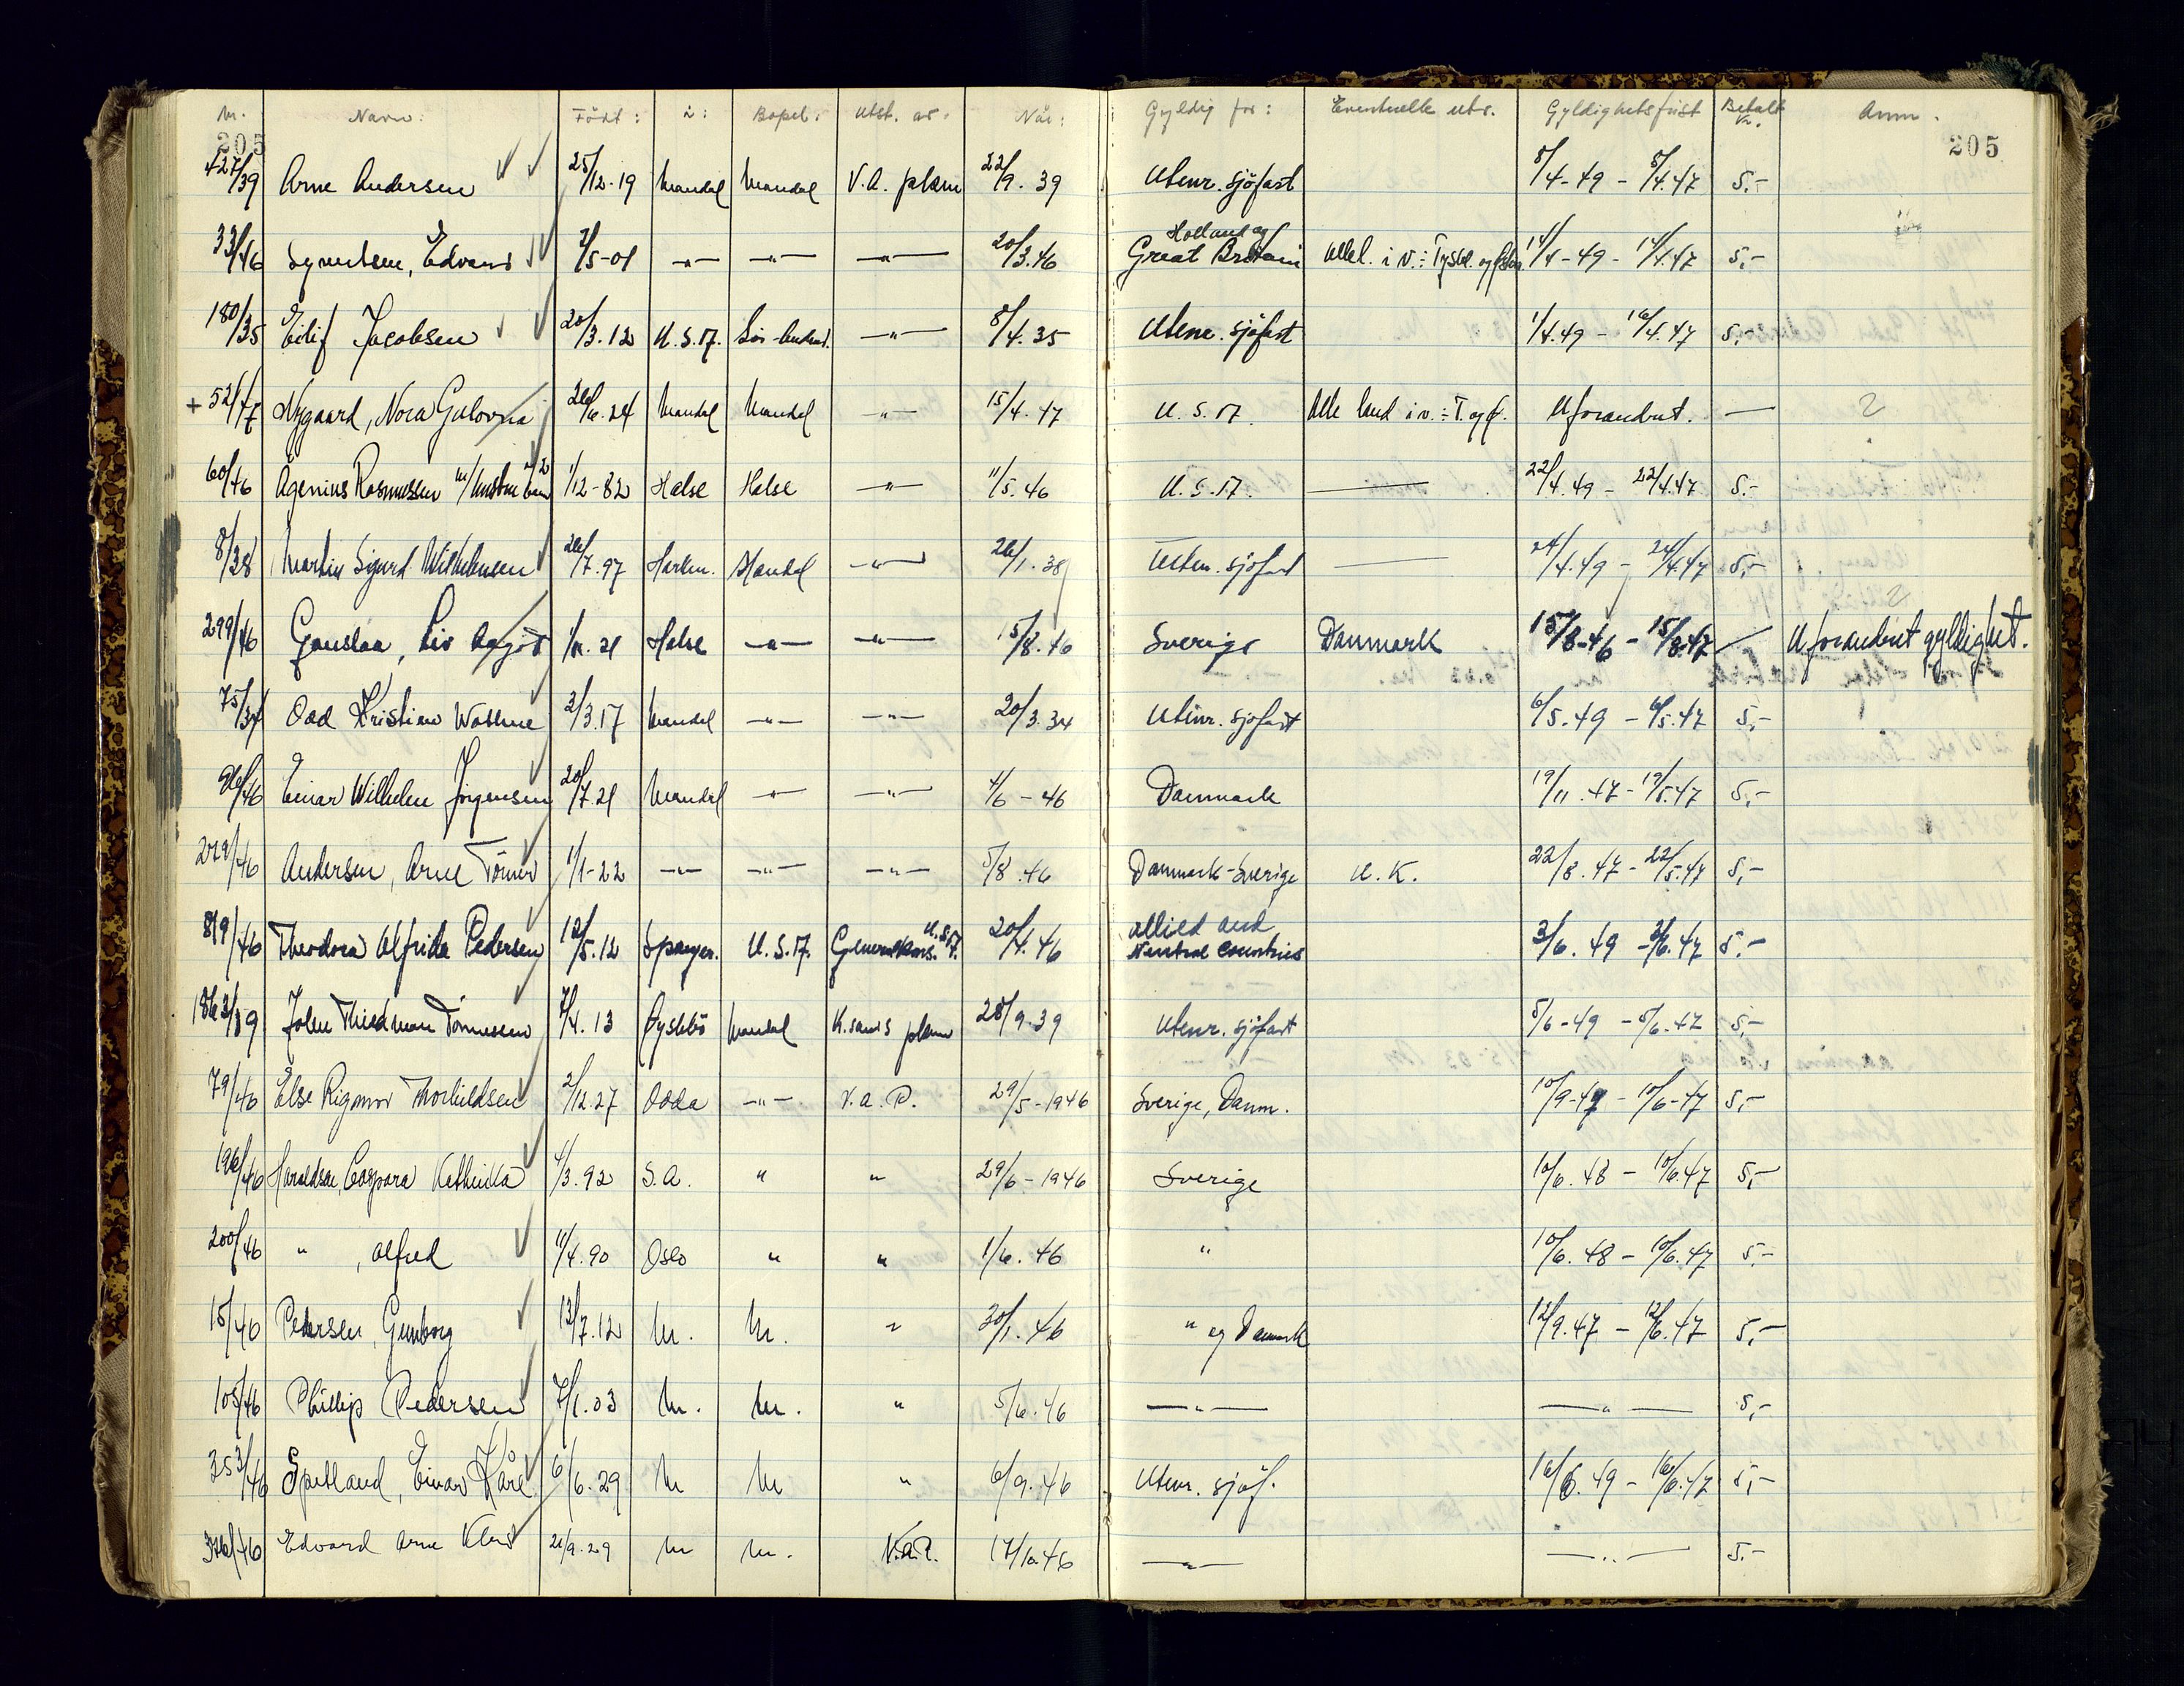 Nr. Navn: Født: i: Bopel: Utst. av: Når: Gyldig for: Eventuelle utv. Gyldighetsfrist Betalt Kr. Anm.
205 205
427/39 Arne Andersen 25/12-19 Mandal Mandal V.A. pkam 22/9. 39 Utenr. sjöfart 8/4-49 - 8/4.47 5.-
33/46 Edvard 7/5-01 -"- -"- -"- 20/3.46 Holland og Great Britain i v. ÷ Tyskl. og 14/4-49 - 14/4.47 5,-
180/35 Eilif Jacobsen 20/3.12 U.S.A. -"- 8/4.35 Utenr. sjöfart 1/4.49 - 16/4.47 5,-
+ 52/47 Nygaard, Nora Gulovna 26/6.24 Mandal Mandal -"- 15/4.47 U.S.A. Alle land i v. ÷ T. og J. Uforandret. —
60/46 Agenius Rasmussen 1/12-82 Halse Halse -"- 11/5.46 U.S.A. — 22/4.49 - 22/4.47 5.-
8/38 Martin Sigurd Wilhelmsen 26/7.97 Harkm. Mandal -"- 26/1.38 Utenr. sjöfart — 24/4.49 - 24/4.47 5,-
299/46 Gauslaa, Liv Aagot 1/11.21 Halse -"- -"- 15/8.46 Sverige Danmark 15/8-46 - 15/8.47 — Uforandret gyldighet.
75/34 Odd Kristian Wathne 2/3.17 Mandal -"- -"- 20/3.34 Utenr. sjöfart 6/5.49 - 6/5.47 5,-
96/46 Einar Wilhelm Jörgensen 20/7.21 Mandal -"- -"- 4/6-46 Danmark 19/11.47 - 19/5.47 5,-
Andersen, Arne 1/1-22 -"- -"- -"- 5/8.46 Danmark-Sverige U.K. 22/8.47 - 22/5.47 5,-
819/46 Theodora Alfrida Pedersen 12/5.12 Spanger. U.S.A. Generalkons. U.S.A. 20/4.46 Allied and Neutral Countries 3/6.49 - 3/6.47 5.-
John Thiedman Tönnessen 7/4.13 Öyslebö Mandal K.sands pkam 28/9.39 Utenr. sjöfart 5/6-49 - 5/6.47 5,-
79/46 Else Rigmor Thorkildsen 2/12.27 Odda -"- V.A.P. 29/5-1946 Sverige, Danm. 10/9-47 - 10/6-47 5,-
196/46 Haraldsen, Caspara Kathinka 4/3.92 S.A. " " 29/6-1946 Sverige 10/6.48 - 10/6.47 5,-
200/46 " , Alfred 11/4.90 Oslo " " 1/6.46 " 10/6.48 - 10/6.47 5.-
15/46 Pedersen, Gunborg 13/7.12 M. M. " 30/1.46 " og Danmark 12/9.47 - 12/6.47 5,-
105/46 Phillip Pedersen 7/1.03 M. M. " 5/6.46 -"- -"- 5,-
353/46 Spetland, Einar Kåre 6/6.29 M M " 6/9.46 Utenr. sjöf. 16/6.49 - 16/6.47 5,-
376/46 Edvard Arne 21/9.29 M M. V.A.P. 17/10.46 -"- -"- 5.-